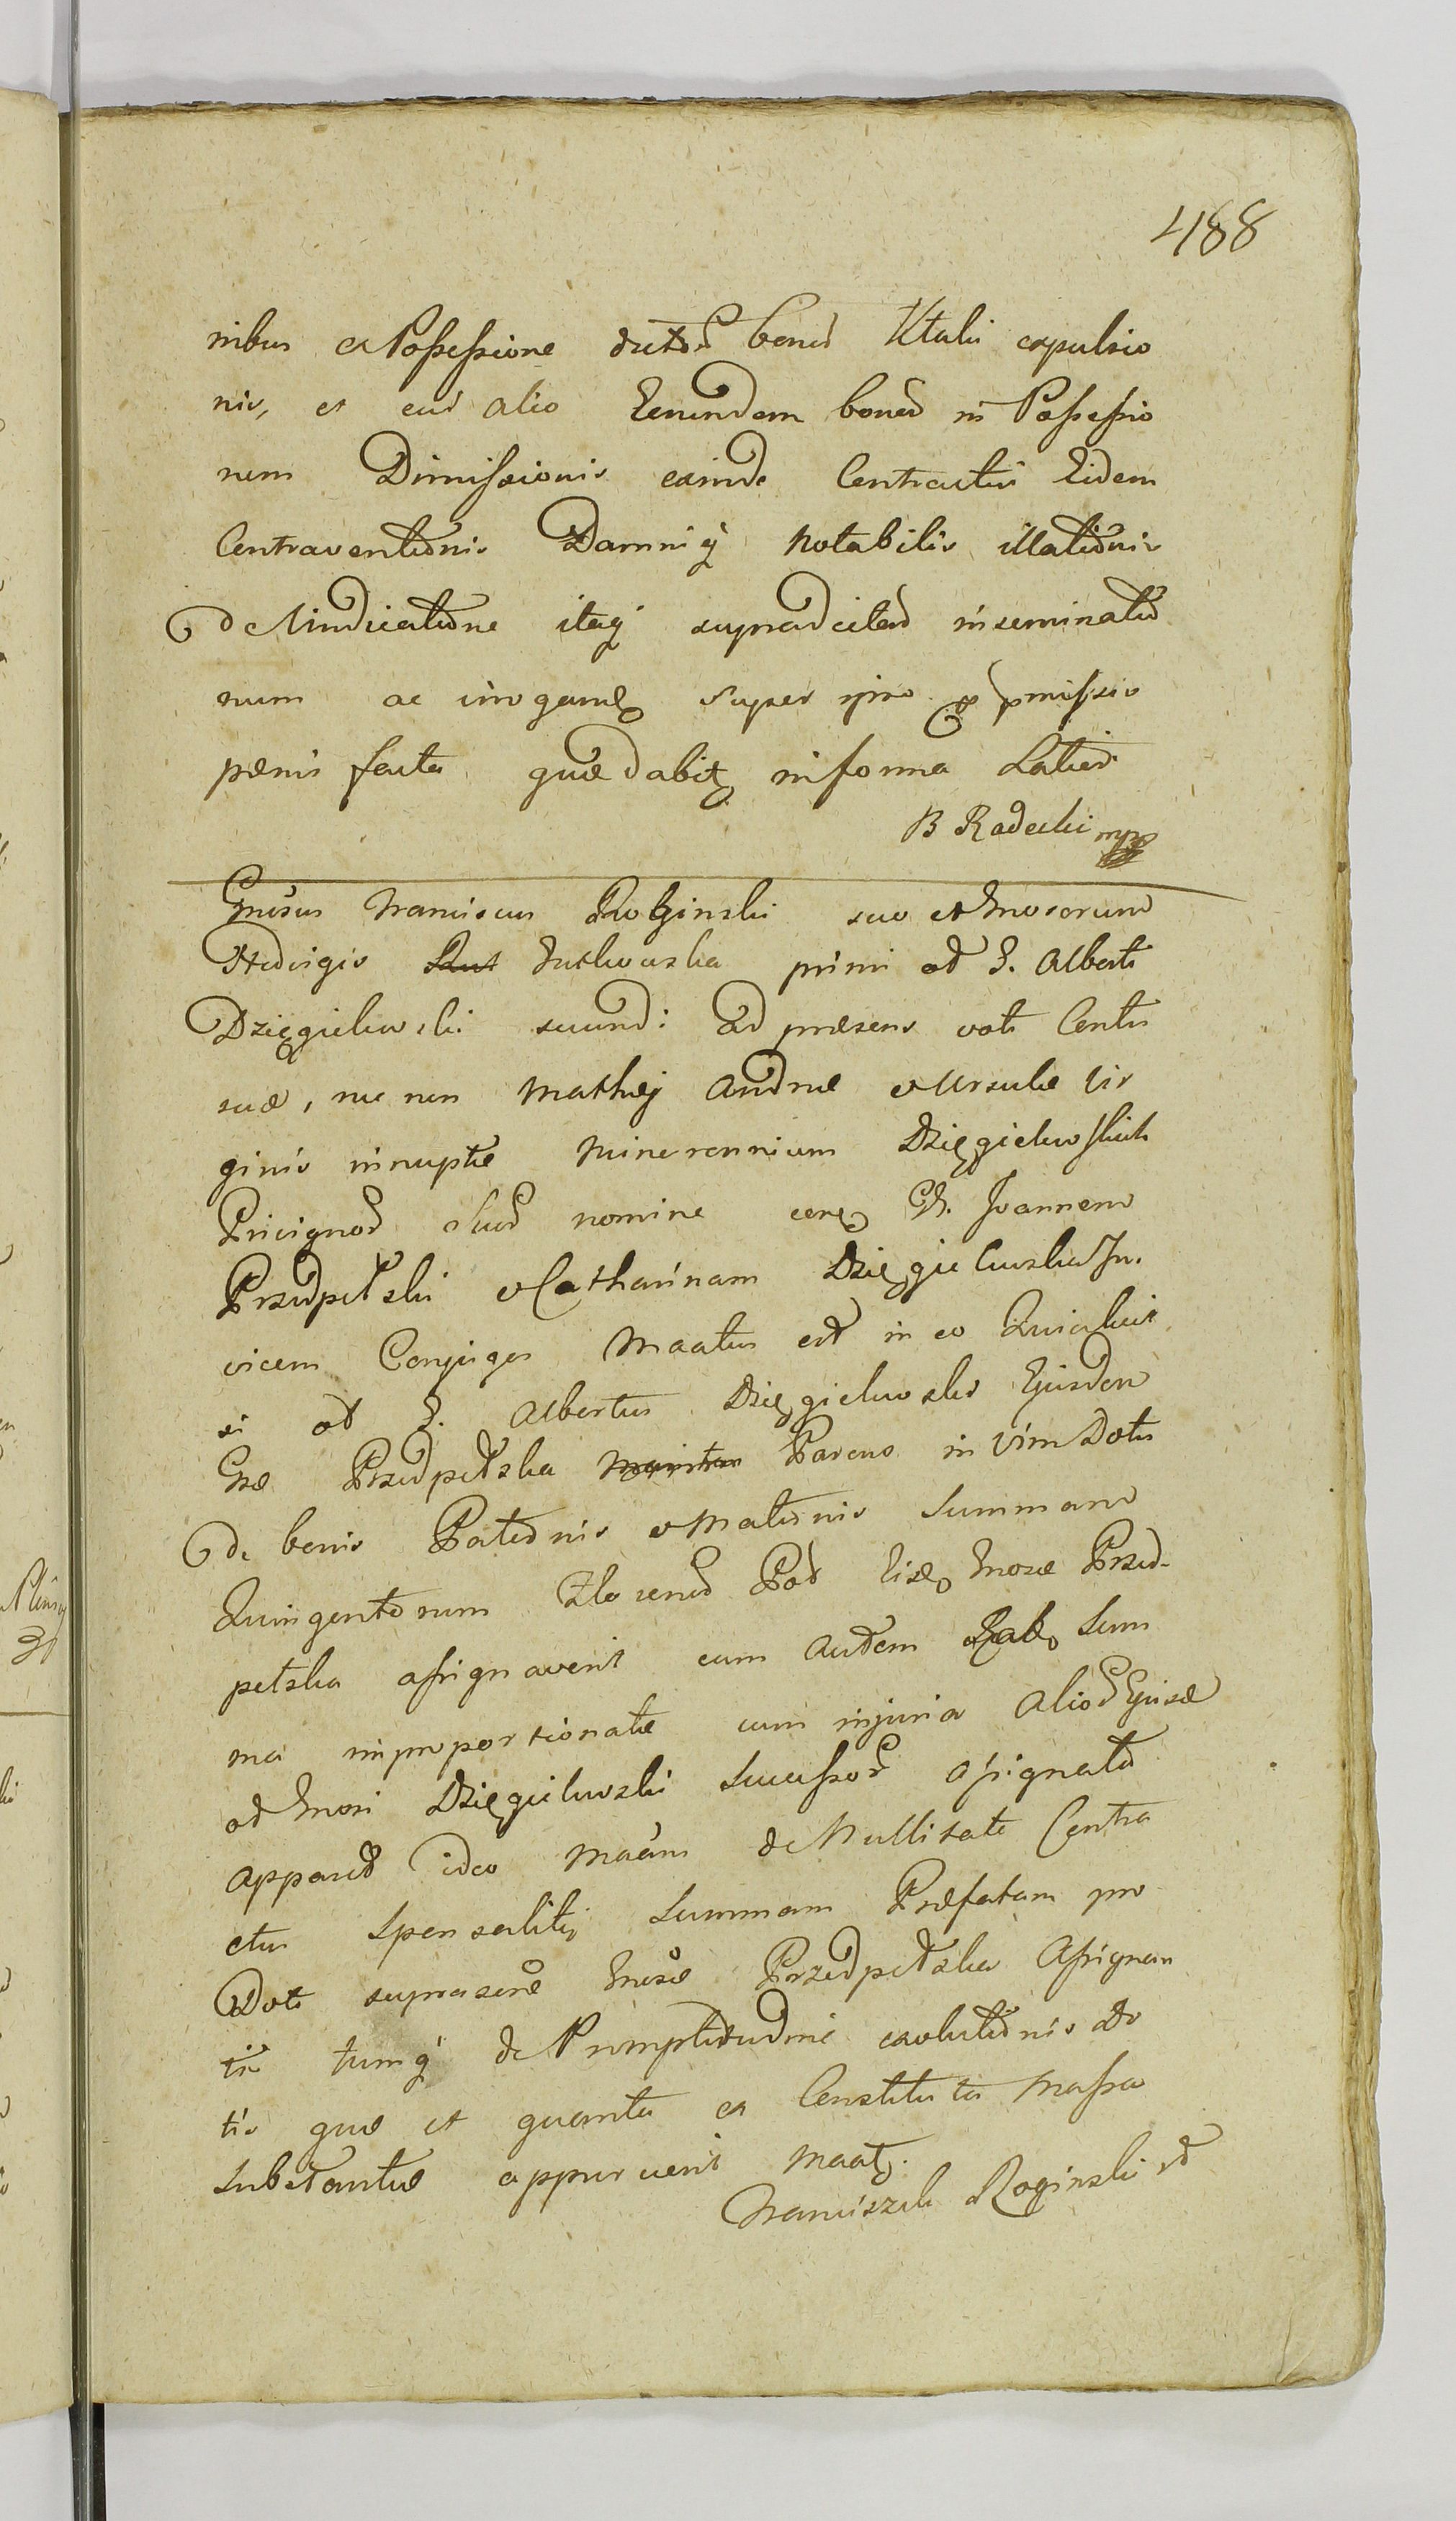 488
nibus ex Possessione dictor. bonor. Ktski expulsio
nis, et eius alio Eorundem bonor. in Possessio
nem Dimissionis exinde Contractui Eidem
Contraventionis Damniq notabilis illationis
de Vindicatione itaq supradictar. inseminatio
num ac super ipso praemissis
paenis facta quae dabit in forma Latiori
B Radecki mpp
Gnrosus Franciscus Roginski suo et Gnosorum
Hedvigis primi od G. Alberti
Dzięgielewski secundi Ad praesens voti Contis
suae, nec non Mathej Andreae et Ursulae Vir
ginis innuptae Minorennium Dzięgielewskich
Privignor. suor. nomine con G. Joannem
Przedpełski et Catharinam Dzięgielewska In
vicem Conjuges Maatus est in eo Quia licet
si od G. Albertus Dzięgielewski Ejusdem
Gae Przedpełska Parens in vim Dotis
de bonis Paternis et Maternis Summam
Quingentorum Flo renor. Pol Gnosae Przed-
pełska assignaverit cum autem Talis Sum
ma improportionate cum injuria alior. Ejusd
od Gnosi Dzięgielewski Successor. assignata
apparet ideo Maam de Nullitate Contra
ctus Sponsalitij Summam Praefatam pro
Dote suprascrae Gnosae Przedpełska Assignan
tis tumq de Promptitudine exolutionis do
tis quae et quanta ex Constituta Massa
Substantiae apparuerit Maat.
Franciszek Roginski